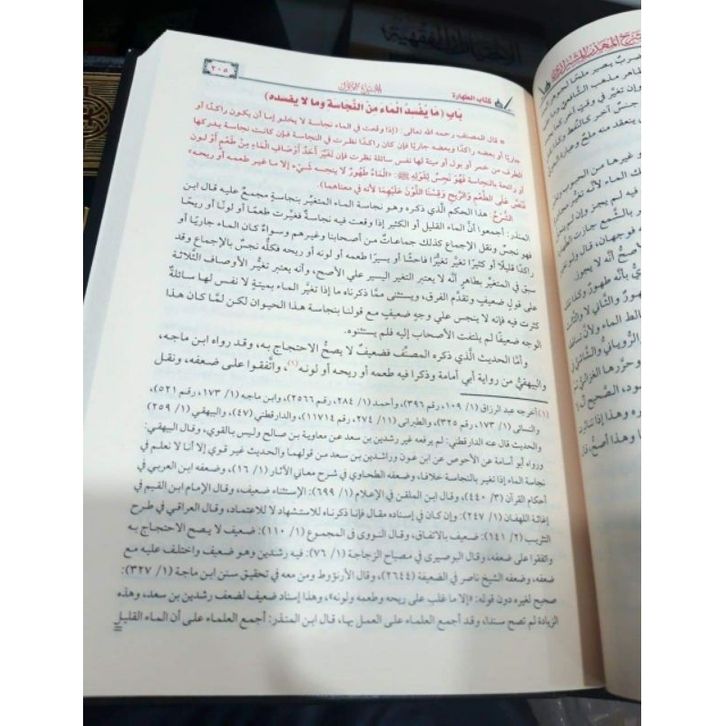 ٢٠٥
كتاب الطهارة
باب (مَا يُفْسدُ الْماءَ مِنَ النَّجاسة وَما لا يفسده)
* قال المصنف رحمه الله تعالى: (إذا وقعت في الماء نجاسة لا يخلو إما أن يكون راكدًا أو
جاريًا أو بعضه راكدًا وبعضه جاريًا فإن كان راكدًا نظرت في النجاسة فإن كانت نجاسة يدركها
الطرف من خمر أو بول أو ميتة لها نفس سائلة نظرت فإن تغير أحد أوصاف الماء من طعم أو لون
أو رائحة بالنجاسة فهو نجس لقوله ﷺ: «الماء طهور لا ينجسه شيء إلا ما غير طعمه أو ريحه»
فنص على الطعم والريح وقسنا اللون عليهما لأنه في معناهما).
الشَّرْحُ: هذا الحكم الَّذي ذكره وهو نجاسة الماء المتغيِّر بنجاسةٍ مجمعٌ عليه قال ابن
المنذر: أجمعوا أنَّ الماء القليل أو الكثير إذا وقعت فيه نجاسةٌ فغيَّرت طعمًا أو لونًا أو ريحًا
فهو نجسٌ ونقل الإجماع كذلك جماعاتٌ من أصحابنا وغيرهم وسواءٌ كان الماء جاريًا أو
راكدًا قليلًا أو كثيرًا تغيَّر تغيُّرًا فاحشًا أو يسيرًا طعمه أو لونه أو ريحه فكلُّه نجسٌ بالإجماع وقد
سبق في المتغيِّر بطاهرٍ أنَّه لا يعتبر التغير اليسير على الأصح، وأنه يعتبر تغيُّر الأوصاف الثَّلاثة
على قولٍ ضعيفٍ وتقدَّم الفرق، ويستثنى ممَّا ذكرناه ما إذا تغيَّر الماء بميتةٍ لا نفس لها سائلةٌ
كثرت فيه فإنه لا ينجس علي وجهٍ ضعيفٍ مع قولنا بنجاسة هذا الحيوان لكن لمَّا كان هذا
الوجه ضعيفًا لم يلتفت الأصحاب إليه فلم يستثنوه.
وأمَّا الحديث الَّذي ذكره المصنِّف فضعيفٌ لا يصحُّ الاحتجاج به، وقد رواه ابن ماجه،
والبيهقيُّ من رواية أبي أمامة وذكرا فيه طعمه أو ريحه أو لونه(١)، واتَّفقوا على ضعفه، ونقل
(١) أخرجه عبد الرزاق (١/ ١٠٩، رقم ٣٩٦)، وأحمد (١/ ٢٨٤، رقم ٢٥٦٦)، وابن ماجه (١/ ١٧٣، رقم ٥٢١)،
والنسائى (١/ ١٧٣، رقم ٣٢٥)، والطبرانى (١١/ ٢٧٤، رقم ١١٧١٤)، والدارقطني (٤٧)، والبيهقي (١/ ٢٥٩)
والحديث قال عنه الدارقطني: لم يرفعه غير رشدين بن سعد عن معاوية بن صالح وليس بالقوي، وقال البيهقي:
ورواه أبو أسامة عن الأحوص عن ابن عون وراشدين بن سعد من قولهما والحديث غير قوي إلا أنا لا نعلم في
نجاسة الماء إذا تغير بالنجاسة خلافا، وضعفه الطحاوي في شرح معاني الآثار (١/ ١٦)، وضعفه ابن العربي في
أحكام القرآن (٣/ ٤٤٠)، وقال ابن الملقن في الإعلام (١/ ٦٩٩): الإستثناء ضعيف، وقال الإمام ابن القيم في
إغاثة اللهفان (١/ ٢٤٧): وإن كان في إسناده مقال فإنا ذكرناه للاستشهاد لا للاعتماد، وقال العراقي في طرح
التثريب (٢/ ١٤١): ضعيف بالاتفاق، وقال النووى فى المجموع (١/ ١١٠): ضعيف لا يصح الاحتجاج به
واتفقوا على ضعفه، وقال البوصيرى في مصباح الزجاجة (١/ ٧٦): فيه رشدين وهو ضعيف واختلف عليه مع
ضعفه، وضعفه الشيخ ناصر في الضعيفة (٢٦٤٤)، وقال الأرنؤوط ومن معه في تحقيق سنن ابن ماجة (١/ ٣٢٧):
صحيح لغيره دون قوله: «إلا ما غلب على ريحه وطعمه ولونه»، وهذا إسناد ضعيف لضعف رشدين بن سعد، وهذه
الزيادة لم تصح سندا، وقد أجمع العلماء على العمل بها، قال ابن المنذر: أجمع العلماء على أن الماء القليل